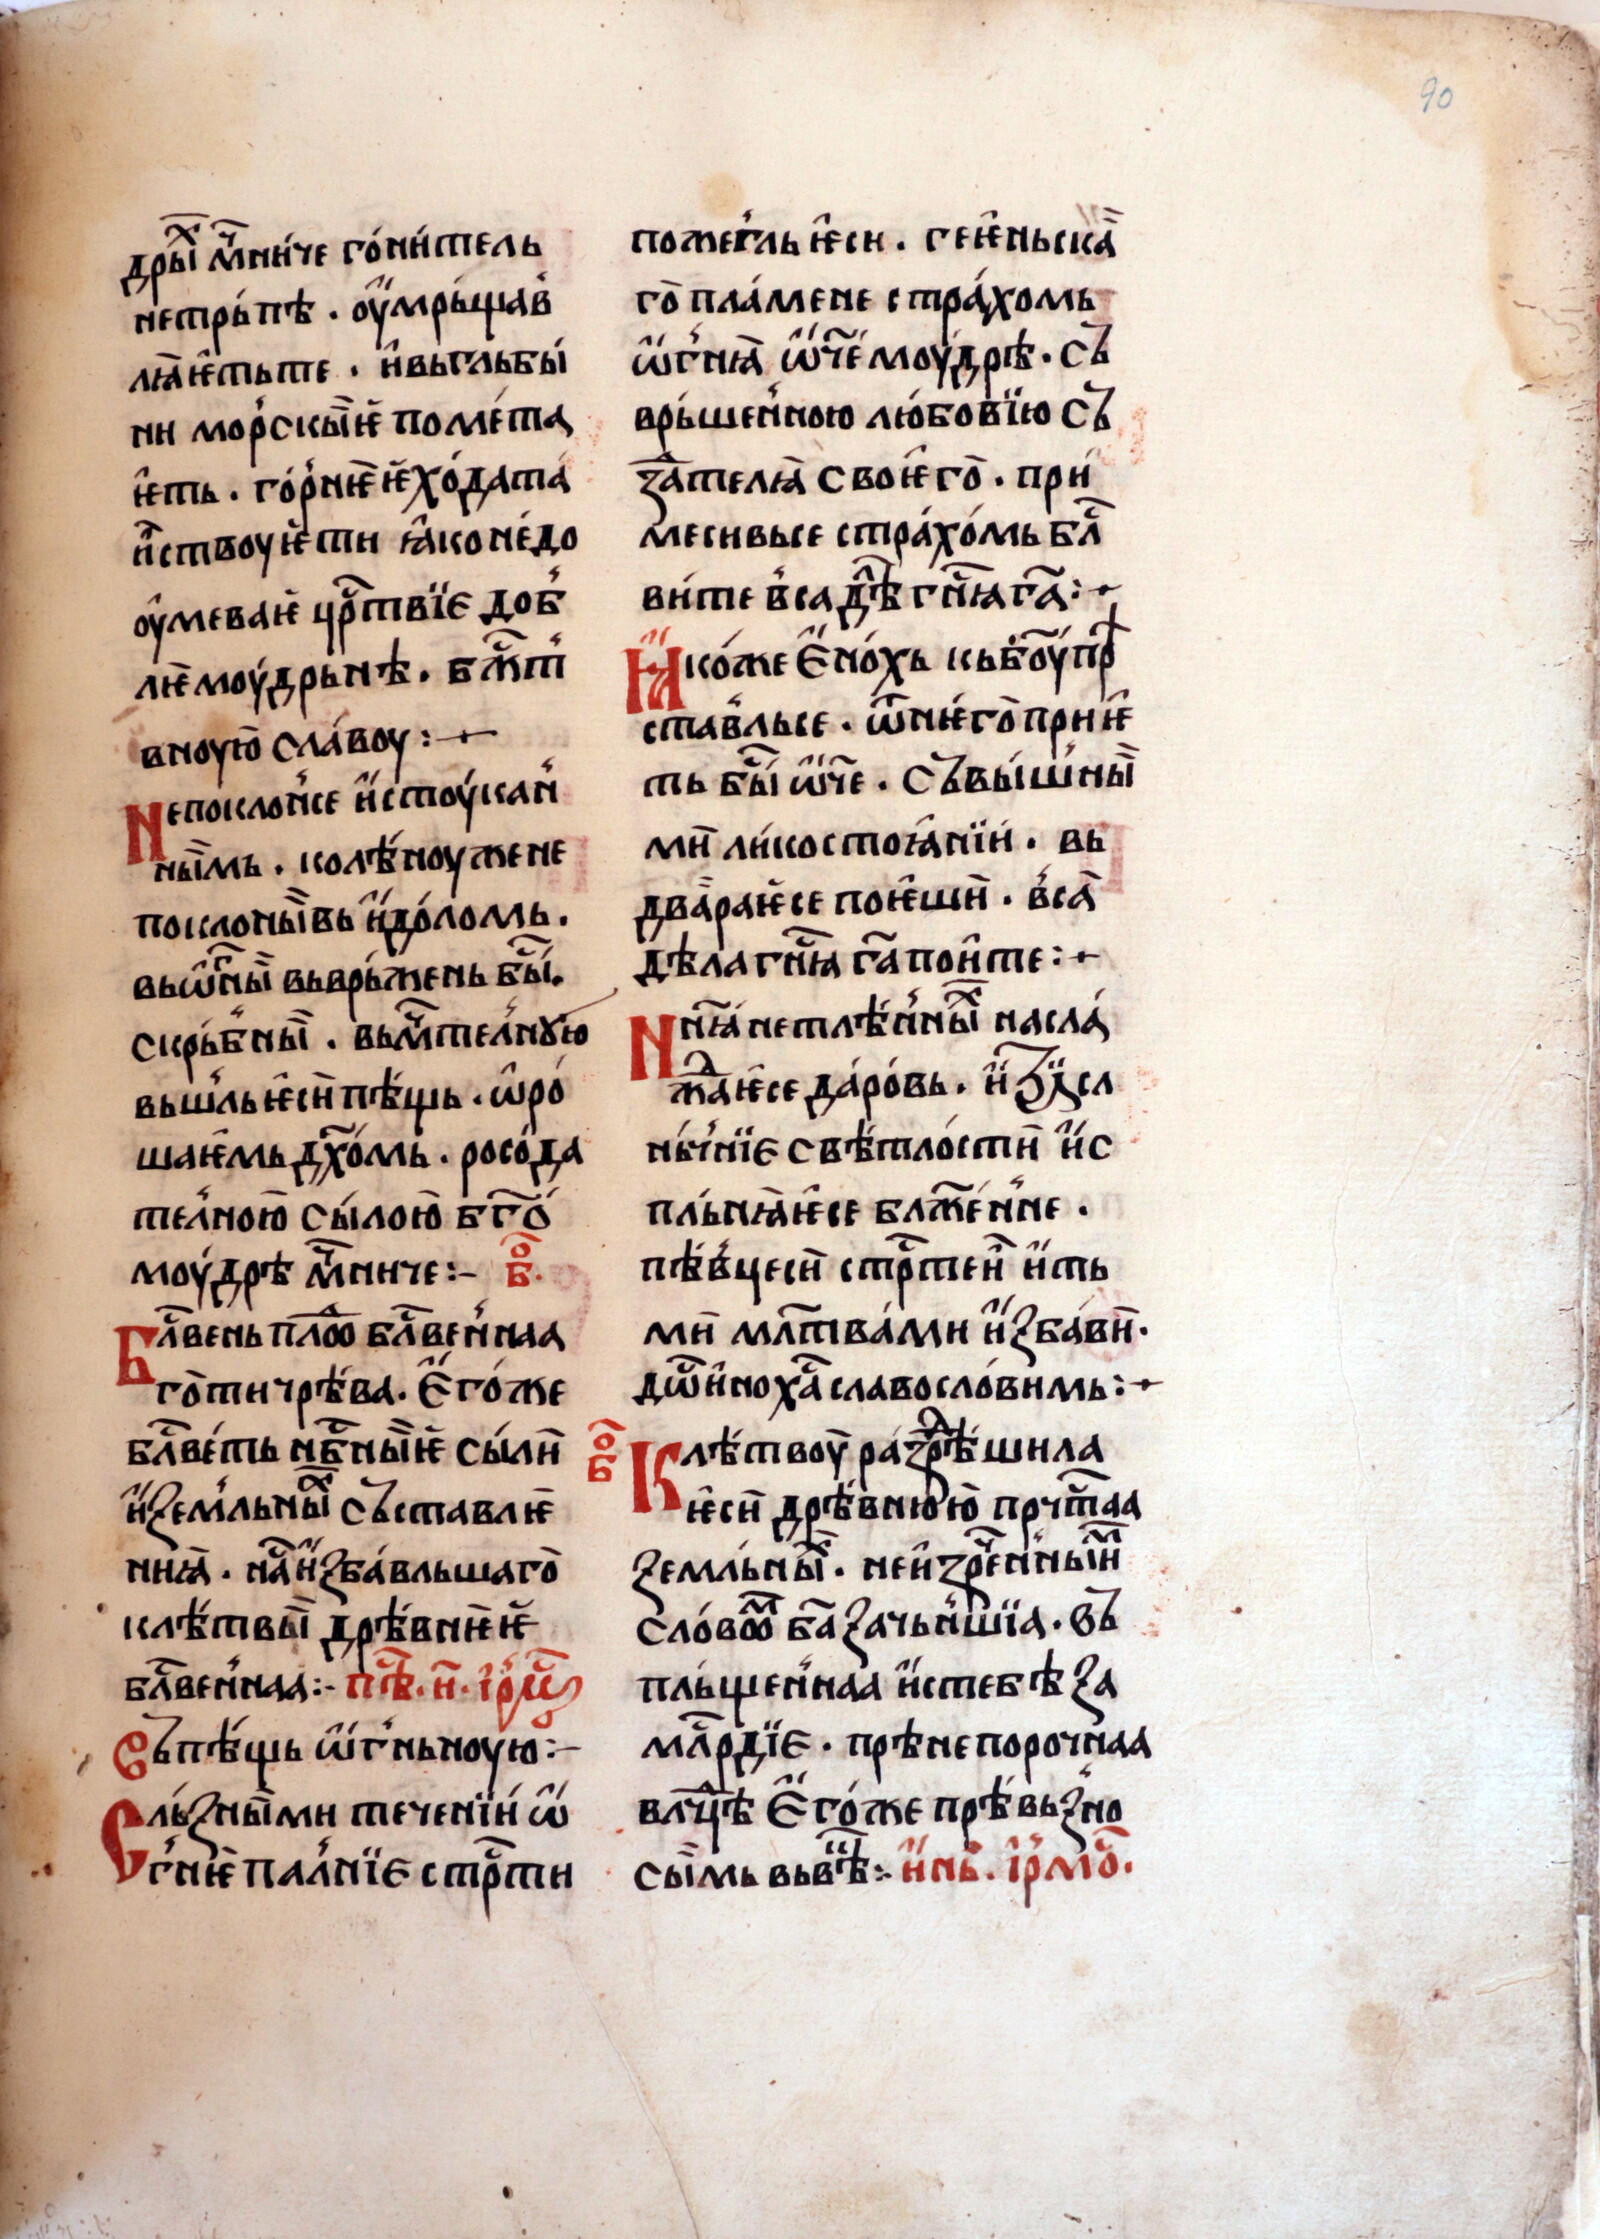 90
дры̑ⷯ мⷱ҇ни́че го́ни́тель
нетрь́пѣ . оу҆мрьщав̾
лꙗ҆ѥ҆тьте . и҆вьгльбы́
ни мор̾скы̏ѥ҆ поме́та
ѥ҆ть . го́р̾нѥ҆ѥ҆хо́дата́
и҆ствоуѥ҆ти ꙗ҆коне́до
оу҆меваѥ҆ црⷭ҇твїе доб̾
лѥ҆моу́дрьнѣ . бжⷭ҇т̾
вноую҆ сла́воу :
Непоклон̾се и҆стоу́кан̾
ны̏мь . колѣ́ноужене
поклоны̏вь и҆до́ломь .
вьѡ҆гн҇ны̏ вьврь́жень бы́ⷭ .
скрь́б̾ны̏ . вьмⷱ҇тел̾нꙋю
вьш̾льѥ҆си҆ пѣ́щь . ѡ҆ро́
шаѥ҆мь дх҃о́мь . росо́да
тел̾ною҆ сы́лою҆ бг҃о́
моу́дрѣ мⷱ҇ниче :– б.о҇
Блⷭ҇вень пло́дь блⷭ҇вен̾наа
го҆тичрѣ́ва . Е҆го́же
блⷭ҇ве́ть нбⷭ҇ны̏ѥ҆ сы́ли҆
и҆зем̾льны̏ⷯ съставлѥ҆
ниꙗ҆ . на́сⷭ и҆зба́вльшаго҆
клѣ́твы̏ дрѣ́внѥ҆ѥ҆
блⷭ҇вен̾наа :– пѣⷭ҇. н҃. і҆рмⷭ҇
Въпѣ́щь ѡ҆г̾ньноую :–
Сль́зны̏ми тече́нїи́ ѡ҆
г̾нѥ҆ пал̾нїе стрⷭ҇ти
пожег̾ль ѥ҆си . геѥ҆ньска҆
го҆ пла́мене стра́хомь
ѡ҆г̾нꙗ҆ ѡ҆ч҃е́ моу́дрѣ . съ
врь́шен̾ною лю́бовїю съ
за҆телꙗ҆ своѥ҆го҆ . при́
месивьсе стра́хо́мь блⷭ҇
ви́те в̾са дѣ҆ гн҇ꙗ га҃ :
Ꙗ҆ко́же Е҆но́хь кьбо҃у прⷣ
став̾льсе . ѿнѥ҆го҆ приѥ҆
ть бы́ⷭ ѡ҆ч҃е . съвы́ш̾ны̏
ми҆ ли́костоꙗ҆нїи́ . вь
два́раѥ҆се поѥ҆ши҆ . в̾са҆
дѣла гн҇ꙗ га҃ пои҆те :
Нн҃ꙗ нетлѣ́н̾ны̏ⷯ насла́
жⷣаѥ҆се да́ро́вь . и҆ зⷣѣ сл
ньч̾нїе свѣ́тло́сти҆ и҆с
пль́нꙗ҆ѥ҆се блж҃е́н̾не .
пѣ́в̾цеси҆ стрⷭ҇тей и҆ть
ми҆ млⷭ҇тва́ми и҆зба́ви҆ .
дѿи҆нохⷭ҇а славосло́вимь :
о҇б Клѣ́твоу҆ разⷣрѣ́шила
ѥ҆си҆ дрѣ́внюю҆ прчⷭ҇таа
земльны̏ⷯ . неи҆зрⷱ҇ен̾ны̏мⷨ
сло́во́мⷨ ба҃ зачьн̾шїа . въ
пль́щен̾наа и҆стебѣ за
млⷭ҇рдїе . прѣнепорочнаа
влⷣцѣ Е҆го́же прѣ́вьз̾но
сы̏мь вьвѣ̏ :– и҆нь . і҆рмоⷭ҇.